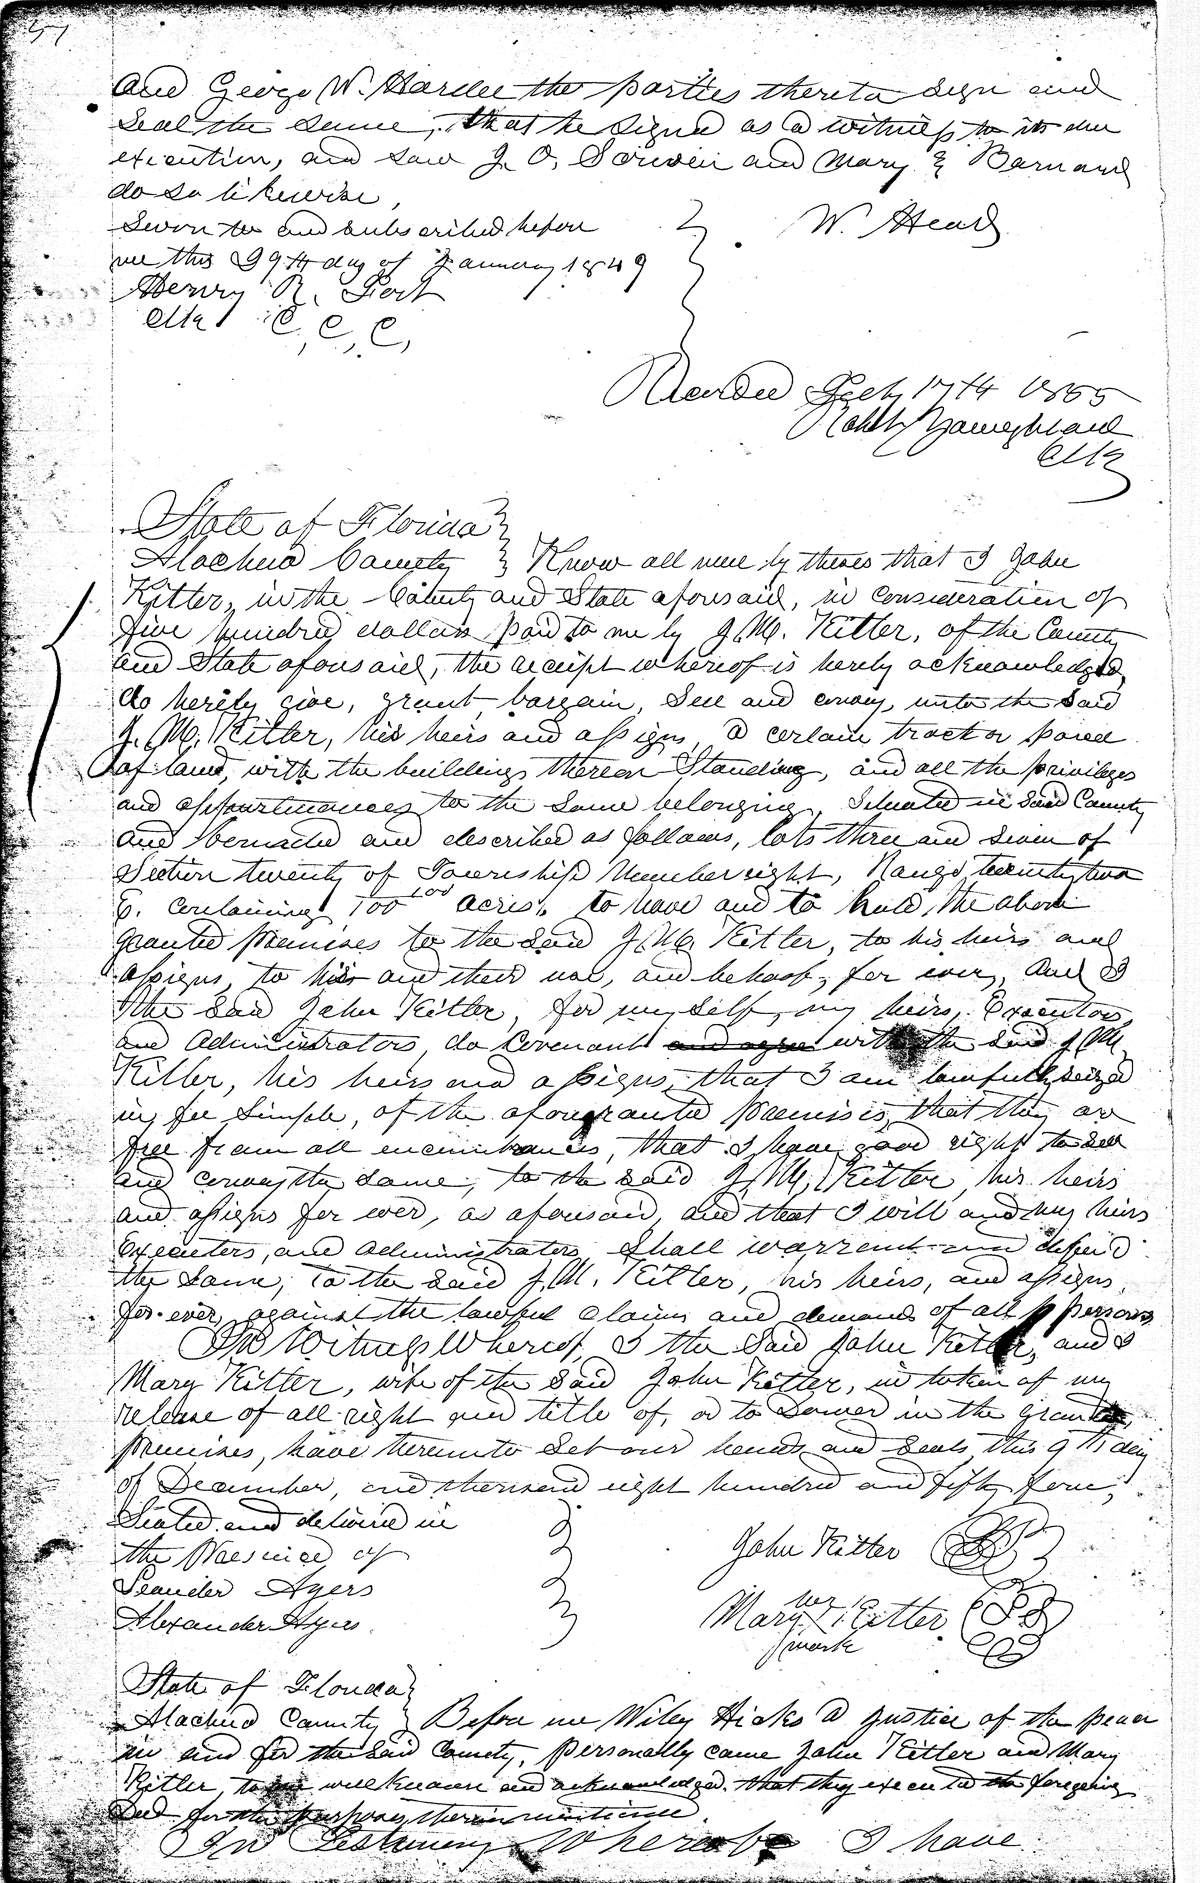 57
and George W. Hardee the parties thereto sign and
Seal the same, that he signed as a witness to its due
execution, and saw J. O. Scriven and Mary E Barnard
do so likewise,
Sworn to and subscribed before
W. Heard
me this 29th day of January 1849
Henry R. Fort
Clk C, C, C,
Recorded Feby 17th 1855
Clk
State of Florida
Alachua County Know all men by theses that I John
Kitler, in the County and State aforesaid, in consideration of
five hundred dollars paid to me by J. M. Kitler, of the County
and State aforesaid, the receipt whereof is hereby acknowledged
do hereby give, grant, bargain, Sell and convey, unto the Said
J. M. Kitler, his heirs and assigns, a certain tract or parcel
of land, with the buildings thereon Standing, and all the privileges
and appurtenances to the Same belonging, Situated in Said County
and bounded and described as follows, lots three and Seven of
Section twenty of Township Number eight, Range twenty two
E. containing 100 acres, to have and to hold, the above
granted premises to the Said J. M. Kitler, to his heirs and
assigns, to his and their use, and behoof, for ever, And I
the Said John Kitler, for my self, my heirs, Executors
and Administrators, do Covenant and agree with the Said J. M.
Kitler, his heirs and assigns, that I am lawfully seized
in fee Simple, of the aforegranted premises, that they are
free from all encumbrances, that I have good right to Sell
and convey the Same, to the said J. M. Kitler, his heirs
and assigns for ever, as aforesaid, and that I will and my heirs
Executors, and Administrators, Shall warrant and defend
the Same, to the Said J. M. Kitler, his heirs, and assigns,
for-ever, against the lawful claims and demands of all persons,
In Witness Whereof, I the Said John Kitler, and I
Mary Kitler, wife of the Said John Kitler, in token of my
release of all right and title of, or to Dower in the granted
premises, have hereunto Set our hands and Seals, this 9th day
of December, one thousand eight hundred and fifty four,
Sealed and delivered in
the Presence of
John Kitler
Leander Ayers
her
Mary X Kitler
Alexander Ayers
mark
State of Florida
Alachua County Before me Wiley Hicks a Justice of the peace
in and for the Said County, personally came John Kitler and Mary
Kitler, to me well known and acknowledged that they executed the foregoing
Deed for the purposes therein mentioned.
In Testimony Whereof I have